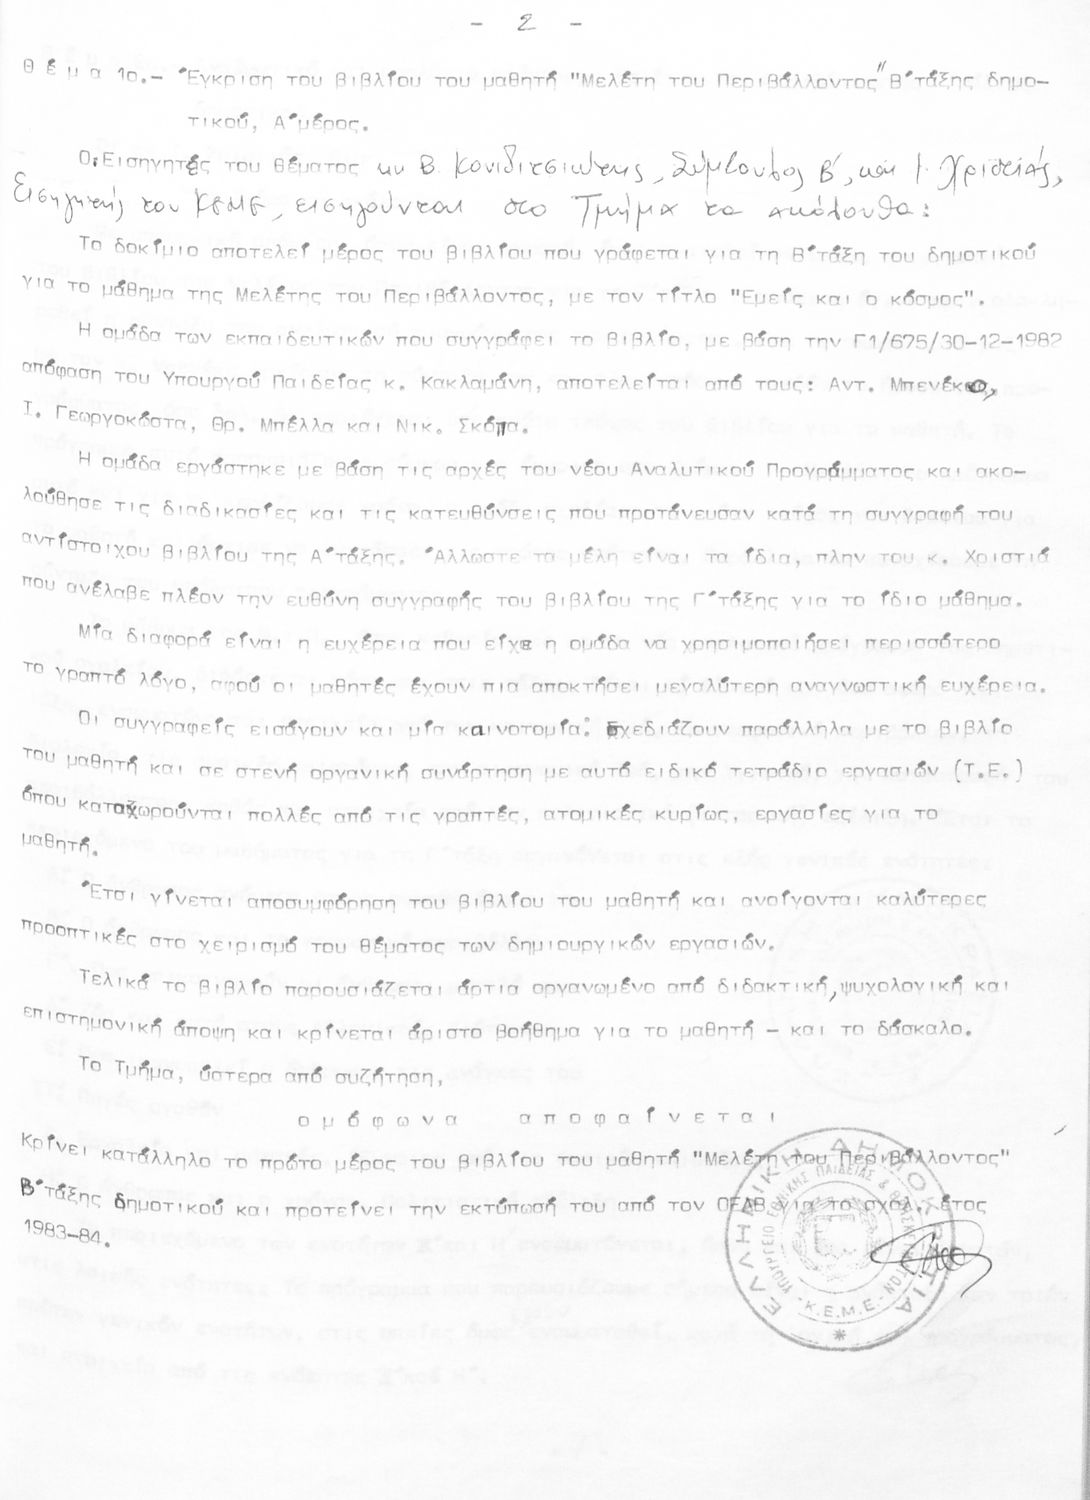 - 2 -
Θ έ μ α 1ο.- Έγκριση του βιβλίου του μαθητή "Μελέτη του Περιβάλλοντος" Β΄τάξης δημο-
τικού, Α΄μέρος.
Οι Εισηγητές του θέματος κκ Β. Κονιδιτσιώτης, Σύμβουλος Β΄, και Ι. Χριστιάς,
Εισηγητής του ΚΕΜΕ, εισηγούνται στο Τμήμα τα ακόλουθα:
Το δοκίμιο αποτελεί μέρος του βιβλίου που γράφεται για τη Β΄τάξη του δημοτικού
για το μάθημα της Μελέτης του Περιβάλλοντος, με τον τίτλο "Εμείς και ο κόσμος".
Η ομάδα των εκπαιδευτικών που συγγράφει το βιβλίο, με βάση την Γ1/675/30-12-1982
απόφαση του Υπουργού Παιδείας κ. Κακλαμάνη, αποτελείται από τους: Αντ. Μπενέκο,
Ι. Γεωργοκώστα, Θρ. Μπέλλα και Νικ. Σκόπα.
Η ομάδα εργάστηκε με βάση τις αρχές του νέου Αναλυτικού Προγράμματος και ακο-
λούθησε τις διαδικασίες και τις κατευθύνσεις που προτάνευσαν κατά τη συγγραφή του
αντίστοιχου βιβλίου της Α΄τάξης. Άλλωστε τα μέλη είναι τα ίδια, πλην του κ. Χριστιά
που ανέλαβε πλέον την ευθύνη συγγραφής του βιβλίου της Γ΄τάξης για το ίδιο μάθημα.
Μία διαφορά είναι η ευχέρεια που είχε η ομάδα να χρησιμοποιήσει περισσότερο
το γραπτό λόγο, αφού οι μαθητές έχουν πια αποκτήσει μεγαλύτερη αναγνωστική ευχέρεια.
Οι συγγραφείς εισάγουν και μία καινοτομία: Σχεδιάζουν παράλληλα με το βιβλίο
του μαθητή και σε στενή οργανική συνάρτηση με αυτό ειδικό τετράδιο εργασιών (Τ.Ε.)
όπου καταχωρούνται πολλές από τις γραπτές, ατομικές κυρίως, εργασίες για το
μαθητή.
Έτσι γίνεται αποσυμφόρηση του βιβλίου του μαθητή και ανοίγονται καλύτερες
προοπτικές στο χειρισμό του θέματος των δημιουργικών εργασιών.
Τελικά το βιβλίο παρουσιάζεται άρτια οργανωμένο από διδακτική, ψυχολογική και
επιστημονική άποψη και κρίνεται άριστο βοήθημα για το μαθητή - και το δάσκαλο.
Το Τμήμα, ύστερα από συζήτηση,
ο μ ό φ ω ν α   α π ο φ α ί ν ε τ α ι
Κρίνει κατάλληλο το πρώτο μέρος του βιβλίου του μαθητή "Μελέτη του Περιβάλλοντος"
Β΄τάξης δημοτικού και προτείνει την εκτύπωσή του από τον ΟΕΔΒ για το σχολ. έτος
1983-84.
ΕΛΛΗΝΙΚΗ ΔΗΜΟΚΡΑΤΙΑ
ΥΠΟΥΡΓΕΙΟ ΕΘΝΙΚΗΣ ΠΑΙΔΕΙΑΣ & ΘΡΗΣΚΕΥΜΑΤΩΝ
- Κ.Ε.Μ.Ε. -